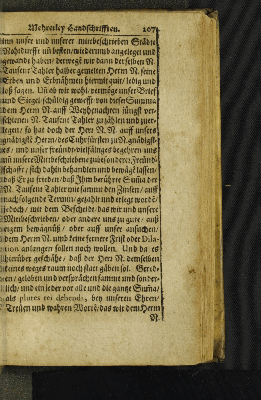 Mehrerley Handschrifften. 207
inn unser und unserer mitbeschriebnen Städte
Nohtdurfft uñ besten / wieder und angeleget und
gewandt haben / derwegen wir dann derselben N.
Tausent Tahler halber gemelten Herrn N. seine
Erben und Erbnähmen hiermit quit / ledig und
loß sagen. Uñ ob wir wohl / vermöge unser Brief
und Siegel / schuldig gewesst / von dieser Summa
dem Herrn N. auff Weyhenachten jüngst ver-
schienen N. Tausent Tahler zu zahlen und zuer-
legen / so hat doch der Herr N. N. auff unsers
gnädigsts Herrn / des Churfürsten zu N. gnädigst-
es / und unser freundvielfältiges begehren uns
und unsere Mitbeschriebene zu besonderer Freund-
schafft / sich dahin behandlen und bewegẽ lassen /
daß Er zu frieden / daß Ihm berührte Sum̃a der
N. Tausent Tahler wie sammt den Zinsen / auff
nachfolgende Termin / gezahlt und erlegt werde /
jedoch / mit dem Bescheide / das wir und unsere
Mitbeschrieben / oder andere uns zu gute / auß
eigem bewegnüß / oder auff unser ansuchen /
dem Herrn N. umb seine fernere Frist oder Dila-
tion anlangen sollen noch wollen. Und da es
hierüber geschähe / daß der Herr N. demselben
keines weges raum noch statt geben sol. Gered-
en / geloben und versprächen sammt und sonder-
lich / und ein jeder vor alle und die gantze Sum̃a /
als plures rei debendi, bey unseren Ehren /
Treuen und wahren Worte / das wir dem Herrn
N.